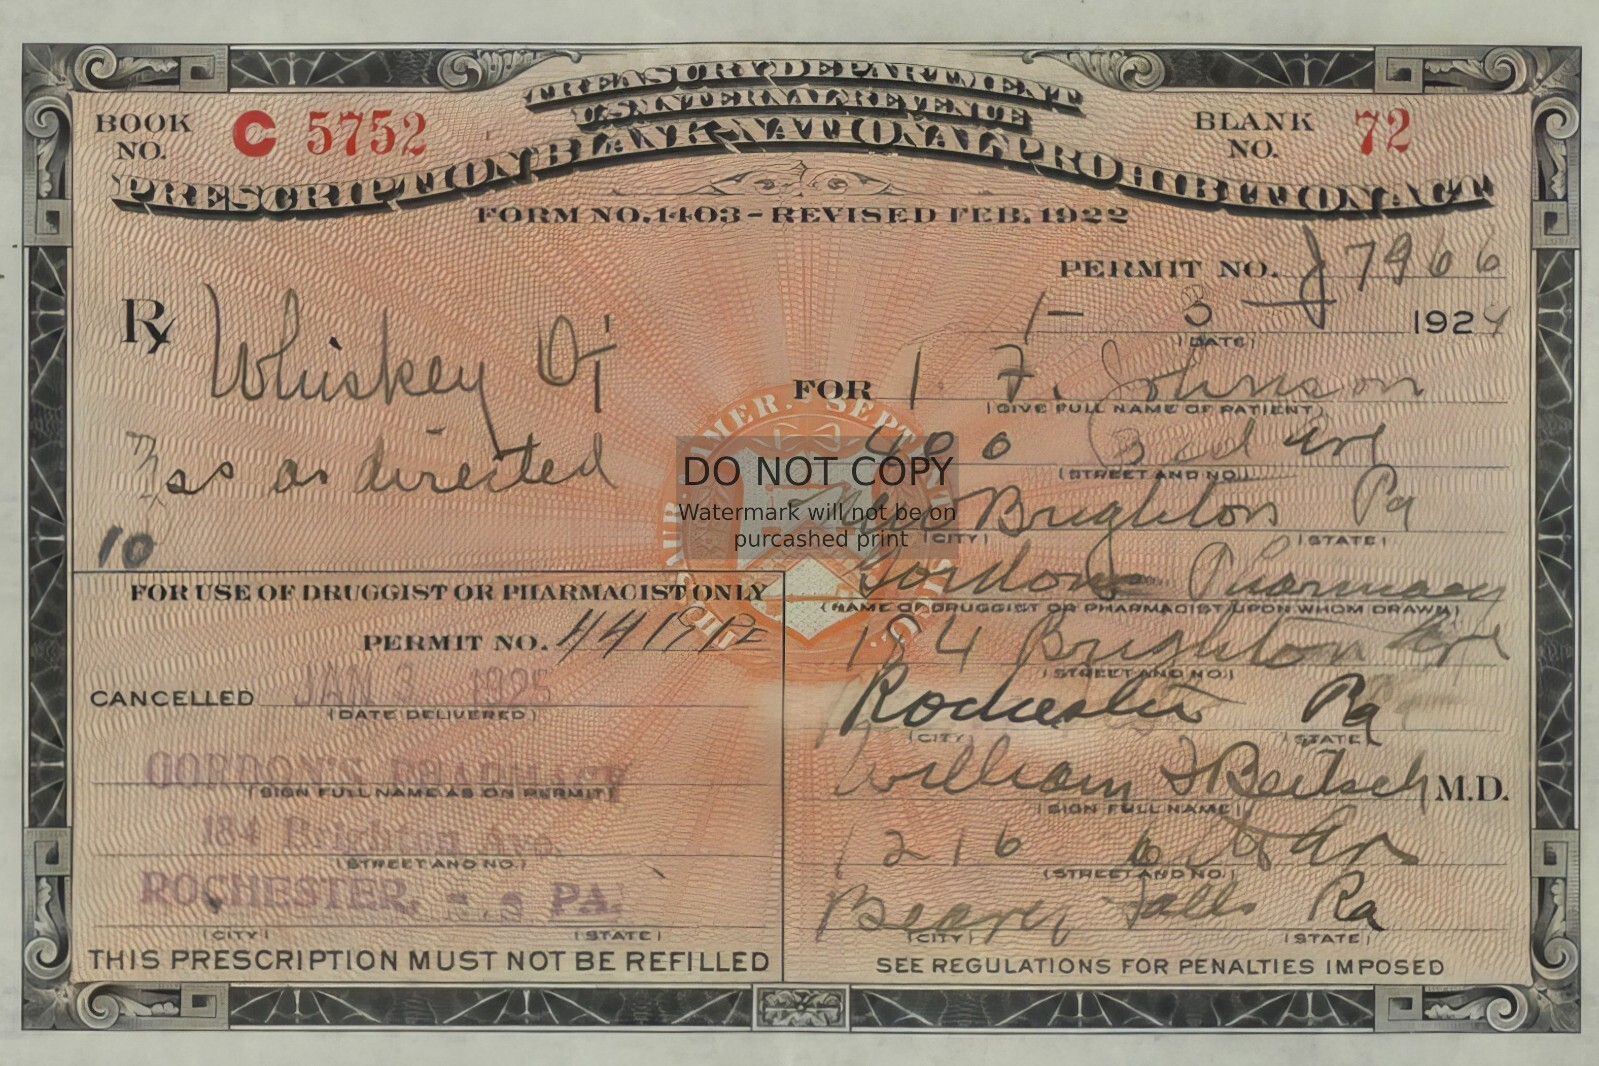 TREASURY DEPARTMENT
U.S. INTERNAL REVENUE
PRESCRIPTION BLANK-NATIONAL PROHIBITION ACT
BOOK NO. C 5752
BLANK NO. 72
FORM NO. 1403-REVISED FEB. 1922
PERMIT NO. J7966
1- 3 1924
(DATE)
Rx Whiskey Oi
FOR F. Johnson
(GIVE FULL NAME OF PATIENT)
400 Ave
(STREET AND NO.)
ss as directed
Brighton Pa
(CITY) (STATE)
10
DO NOT COPY
Watermark will not be on
purcashed print
Gordons Pharmacy
(NAME OF DRUGGIST OR PHARMACIST UPON WHOM DRAWN)
184 Brighton Ave
(STREET AND NO.)
Rochester Pa
(CITY) (STATE)
William F Beitsch M.D.
(SIGN FULL NAME)
1216 6
(STREET AND NO.)
Beaver Falls Pa
(CITY) (STATE)
SEE REGULATIONS FOR PENALTIES IMPOSED
FOR USE OF DRUGGIST OR PHARMACIST ONLY
PERMIT NO.
CANCELLED JAN 3 1925
(DATE DELIVERED)
GORDON'S PHARMACY
(SIGN FULL NAME AS ON PERMIT)
184 Brighton Ave.
(STREET AND NO.)
ROCHESTER, PA.
(CITY) (STATE)
THIS PRESCRIPTION MUST NOT BE REFILLED